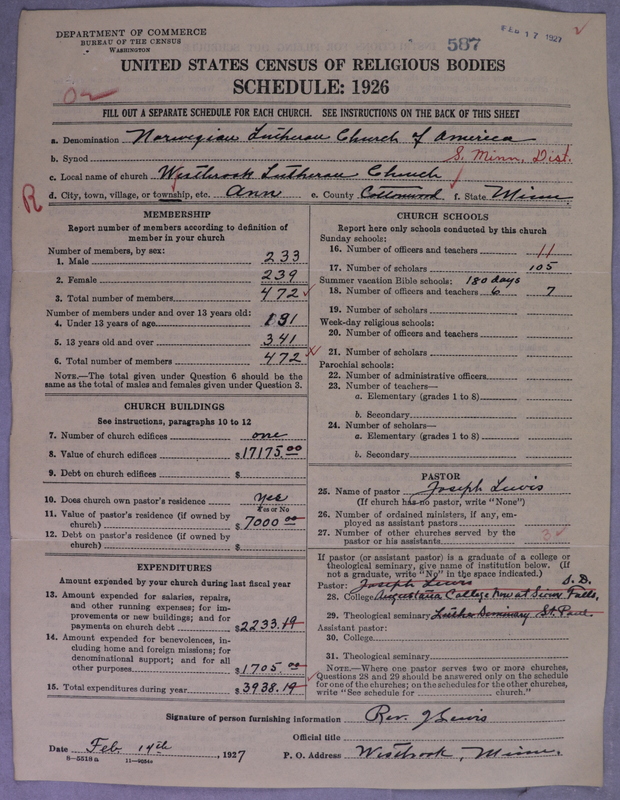 FEB 17 1927
587
DEPARTMENT OF COMMERCE
BUREAU OF THE CENSUS
WASHINGTON
UNITED STATES CENSUS OF RELIGIOUS BODIES
SCHEDULE: 1926
FILL OUT A SEPARATE SCHEDULE FOR EACH CHURCH. SEE INSTRUCTIONS ON THE BACK OF THIS SHEET
a. Denomination Norwegian Lutheran Church of America
b. Synod S. Minn. Dist.
c. Local name of church Westbrook Lutheran Church
d. City, town, village, or township, etc. Ann e. County Cottonwood f. State Minn.
R
MEMBERSHIP
Report number of members according to definition of
member in your church
Number of members, by sex:
1. Male 233
2. Female 239
3. Total number of members 472
Number of members under and over 13 years old:
4. Under 13 years of age 131
5. 13 years old and over 341
6. Total number of members 472
NOTE.—The total given under Question 6 should be the
same as the total of males and females given under Question 3.
CHURCH BUILDINGS
See instructions, paragraphs 10 to 12
7. Number of church edifices one
8. Value of church edifices $17175.00
9. Debt on church edifices $
10. Does church own pastor's residence Yes
Yes or No
11. Value of pastor's residence (if owned by
church) $7000 00
12. Debt on pastor's residence (if owned by
church) $
EXPENDITURES
Amount expended by your church during last fiscal year
13. Amount expended for salaries, repairs,
and other running expenses; for im-
provements or new buildings; and for
payments on church debt $2233.19
14. Amount expended for benevolences, in-
cluding home and foreign missions; for
denominational support; and for all
other purposes $1705.00
15. Total expenditures during year $3938.19
CHURCH SCHOOLS
Report here only schools conducted by this church
Sunday schools:
16. Number of officers and teachers 11
17. Number of scholars 105
Summer vacation Bible schools: 180 days
18. Number of officers and teachers 6 7
19. Number of scholars
Week-day religious schools:
20. Number of officers and teachers
21. Number of scholars
Parochial schools:
22. Number of administrative officers
23. Number of teachers—
a. Elementary (grades 1 to 8)
b. Secondary
24. Number of scholars—
a. Elementary (grades 1 to 8)
b. Secondary
PASTOR
25. Name of pastor Joseph Lewis
(If church has no pastor, write "None")
26. Number of ordained ministers, if any, em-
ployed as assistant pastors
27. Number of other churches served by the
pastor or his assistants 3
If pastor (or assistant pastor) is a graduate of a college or
theological seminary, give name of institution below. (If
not a graduate, write "No" in the space indicated.)
Pastor: Joseph Lewis S. D.
28. College Augustana College Now at Sioux Falls,
29. Theological seminary Luther Seminary St. Paul.
Assistant pastor:
30. College
31. Theological seminary
NOTE.—Where one pastor serves two or more churches,
Questions 28 and 29 should be answered only on the schedule
for one of the churches; on the schedules for the other churches,
write "See schedule for church."
Signature of person furnishing information Rev. J Lewis
Official title
Date Feb. 14th, 1927 P. O. Address Westbrook, Minn.
8-5518a 11-9034a